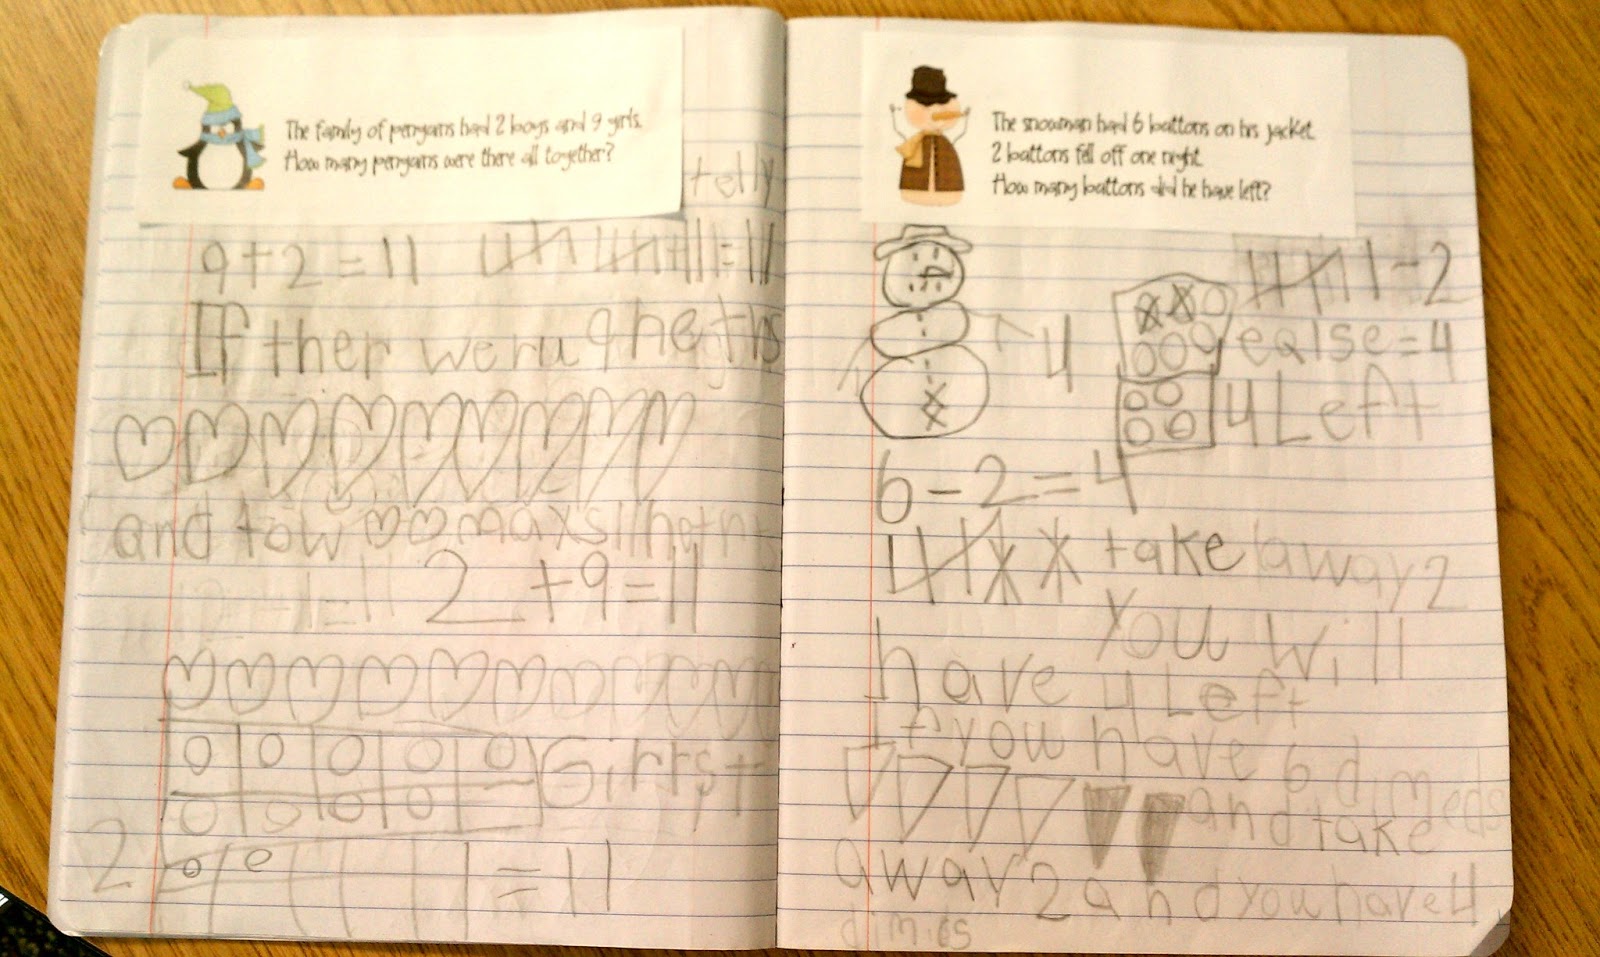 The family of penguins had 2 boys and 9 girls.
How many penguins were there all together?
telly
9+2=11 11=11
If ther weru 9 hea
and tow maxs 11
1=11 2+9=11
Girrs+
2 =11
The snowman had 6 buttons on his jacket.
2 buttons fell off one night.
How many buttons did he have left?
1-2
4 eqlse=4
4 Left
6-2=4
take away 2
You Will
have 4 Left
If you have 6 dimeds
and take
away 2 and you have 4
dimes